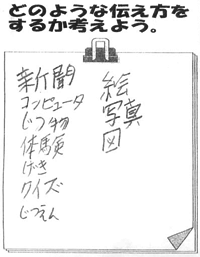 どのような伝え方を
するか考えよう。
新聞
コンピュータ
じつ物
体験
げき
クイズ
じつえん
絵
写真
図